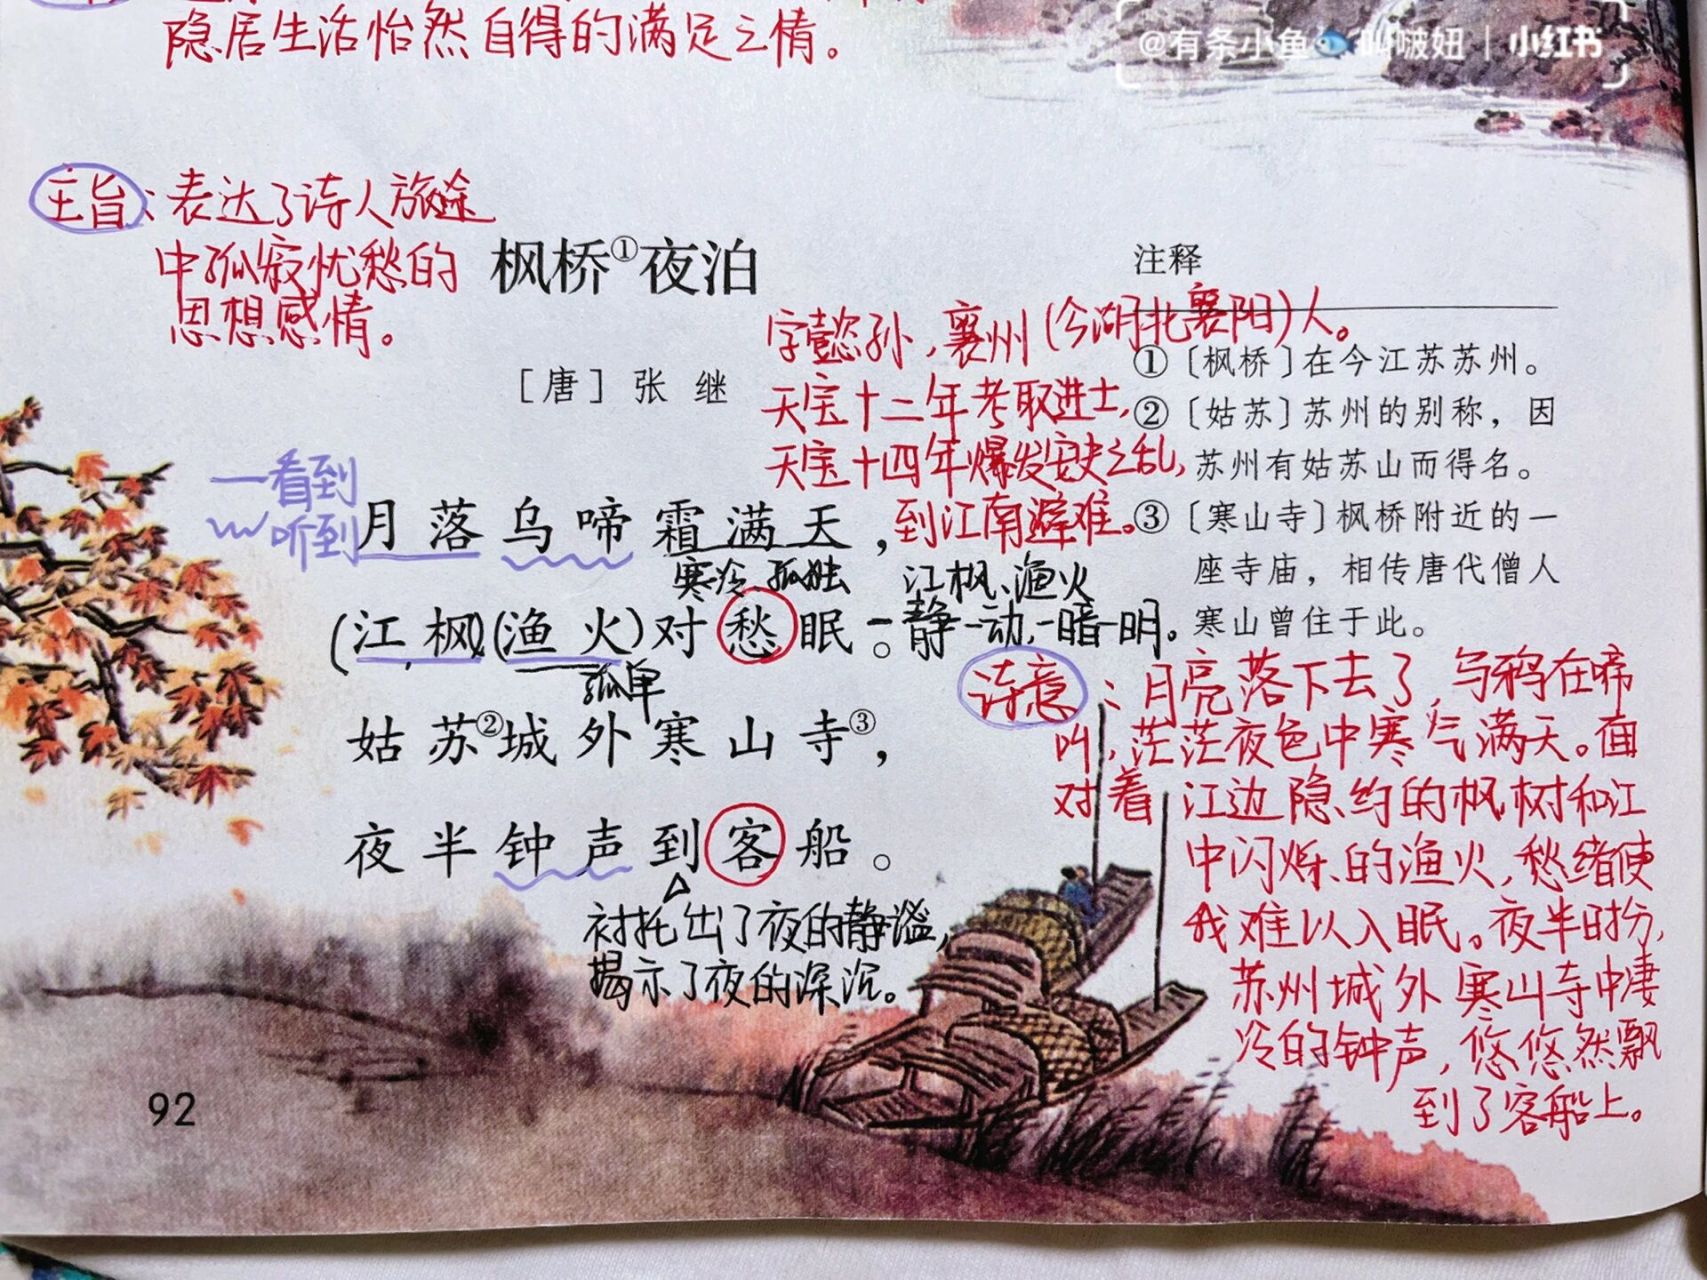 隐居生活怡然自得的满足之情。
@有条小鱼🐟叫啵妞 | 小红书
主旨：表达了诗人旅途
中孤寂忧愁的
思想感情。
枫桥①夜泊
［唐］张 继
字懿孙，襄州(今湖北襄阳)人。
天宝十二年考取进士，
天宝十四年爆发安史之乱，
到江南避难。
一看到
﹏听到
月落乌啼霜满天，
寒冷、孤独
江枫、渔火
(江枫)(渔火)对愁眠。
一静一动，一暗一明。
孤单
姑苏②城外寒山寺③，
夜半钟声到客船。
衬托出了夜的静谧，
揭示了夜的深沉。
注释
①〔枫桥〕在今江苏苏州。
②〔姑苏〕苏州的别称，因
苏州有姑苏山而得名。
③〔寒山寺〕枫桥附近的一
座寺庙，相传唐代僧人
寒山曾住于此。
诗意：月亮落下去了，乌鸦在啼
叫，茫茫夜色中寒气满天。面
对着江边隐约的枫树和江
中闪烁的渔火，愁绪使
我难以入眠。夜半时分，
苏州城外寒山寺中凄
冷的钟声，悠悠然飘
到了客船上。
92